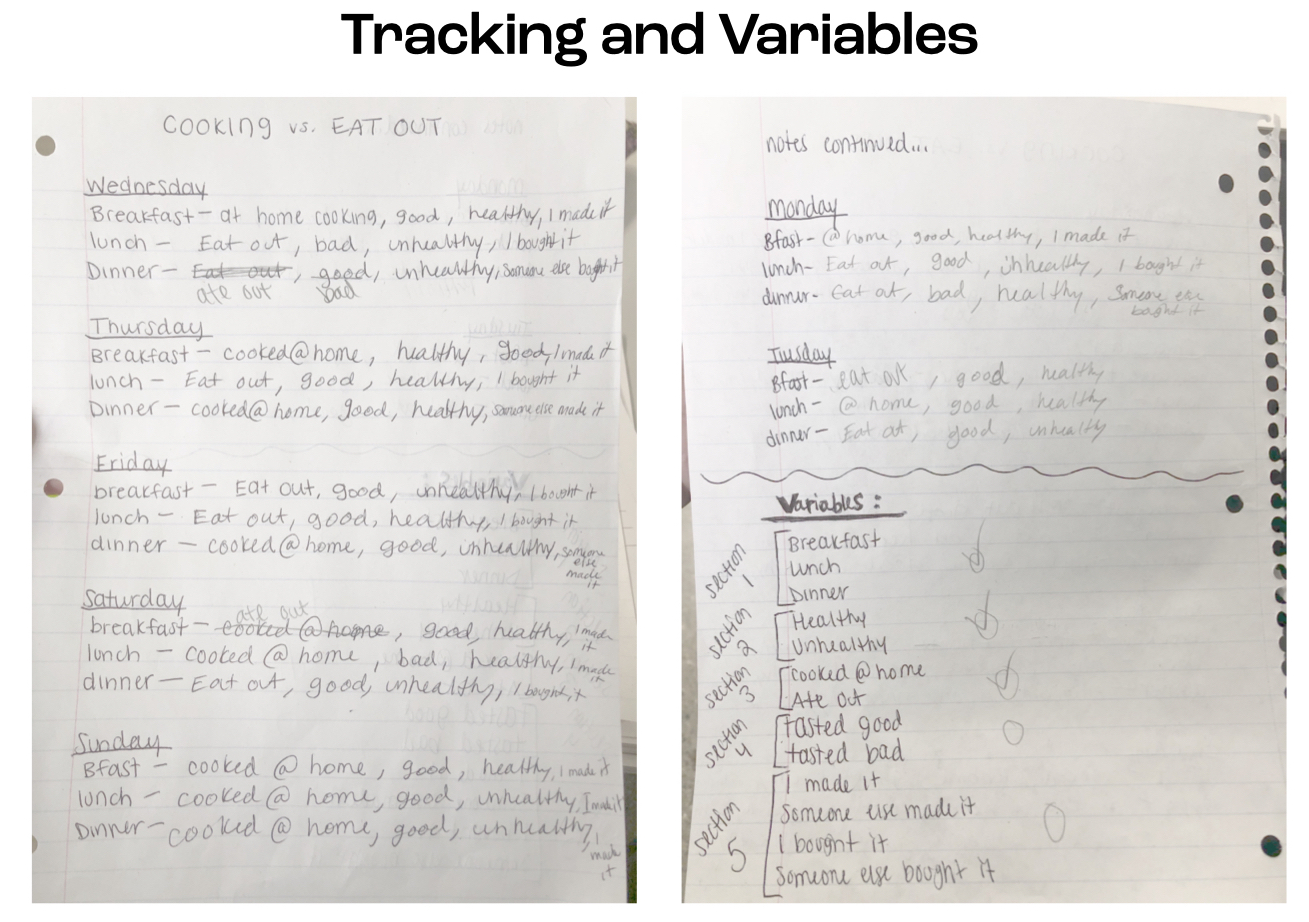 Tracking and Variables
COOKING vs. EAT OUT
Wednesday
Breakfast – at home cooking, good, healthy, I made it
lunch – Eat out, bad, unhealthy, I bought it
Dinner – Eat out, good, unhealthy, Someone else bought it
ate out bad
Thursday
Breakfast – cooked@home, healthy, good, I made it
lunch – Eat out, good, healthy, I bought it
Dinner – cooked@home, good, healthy, someone else made it
Friday
breakfast – Eat out, good, unhealthy, I bought it
lunch – Eat out, good, healthy, I bought it
dinner – cooked@home, good, unhealthy, someone
else
made
it
Saturday
ate out
breakfast – cooked @home, good, healthy, I made
it
lunch – cooked @ home, bad, healthy, I made
it
dinner – Eat out, good, unhealthy, I bought it
Sunday
Bfast – cooked @ home, good, healthy, I made it
lunch – cooked @ home, good, unhealthy, I made it
Dinner – cooked @ home, good, unhealthy, I
made
it
notes continued...
Monday
Bfast – @ home, good, healthy, I made it
lunch – Eat out, good, unhealthy, I bought it
dinner – Eat out, bad, healthy, Someone else
bought it
Tuesday
Bfast – eat out, good, healthy
lunch – @ home, good, healthy
dinner – Eat out, good, unhealthy
Variables:
section 1
Breakfast
lunch
Dinner
section 2
Healthy
Unhealthy
section 3
cooked @ home
Ate out
section 4
tasted good
tasted bad
section 5
I made it
Someone else made it
I bought it
Someone else bought it